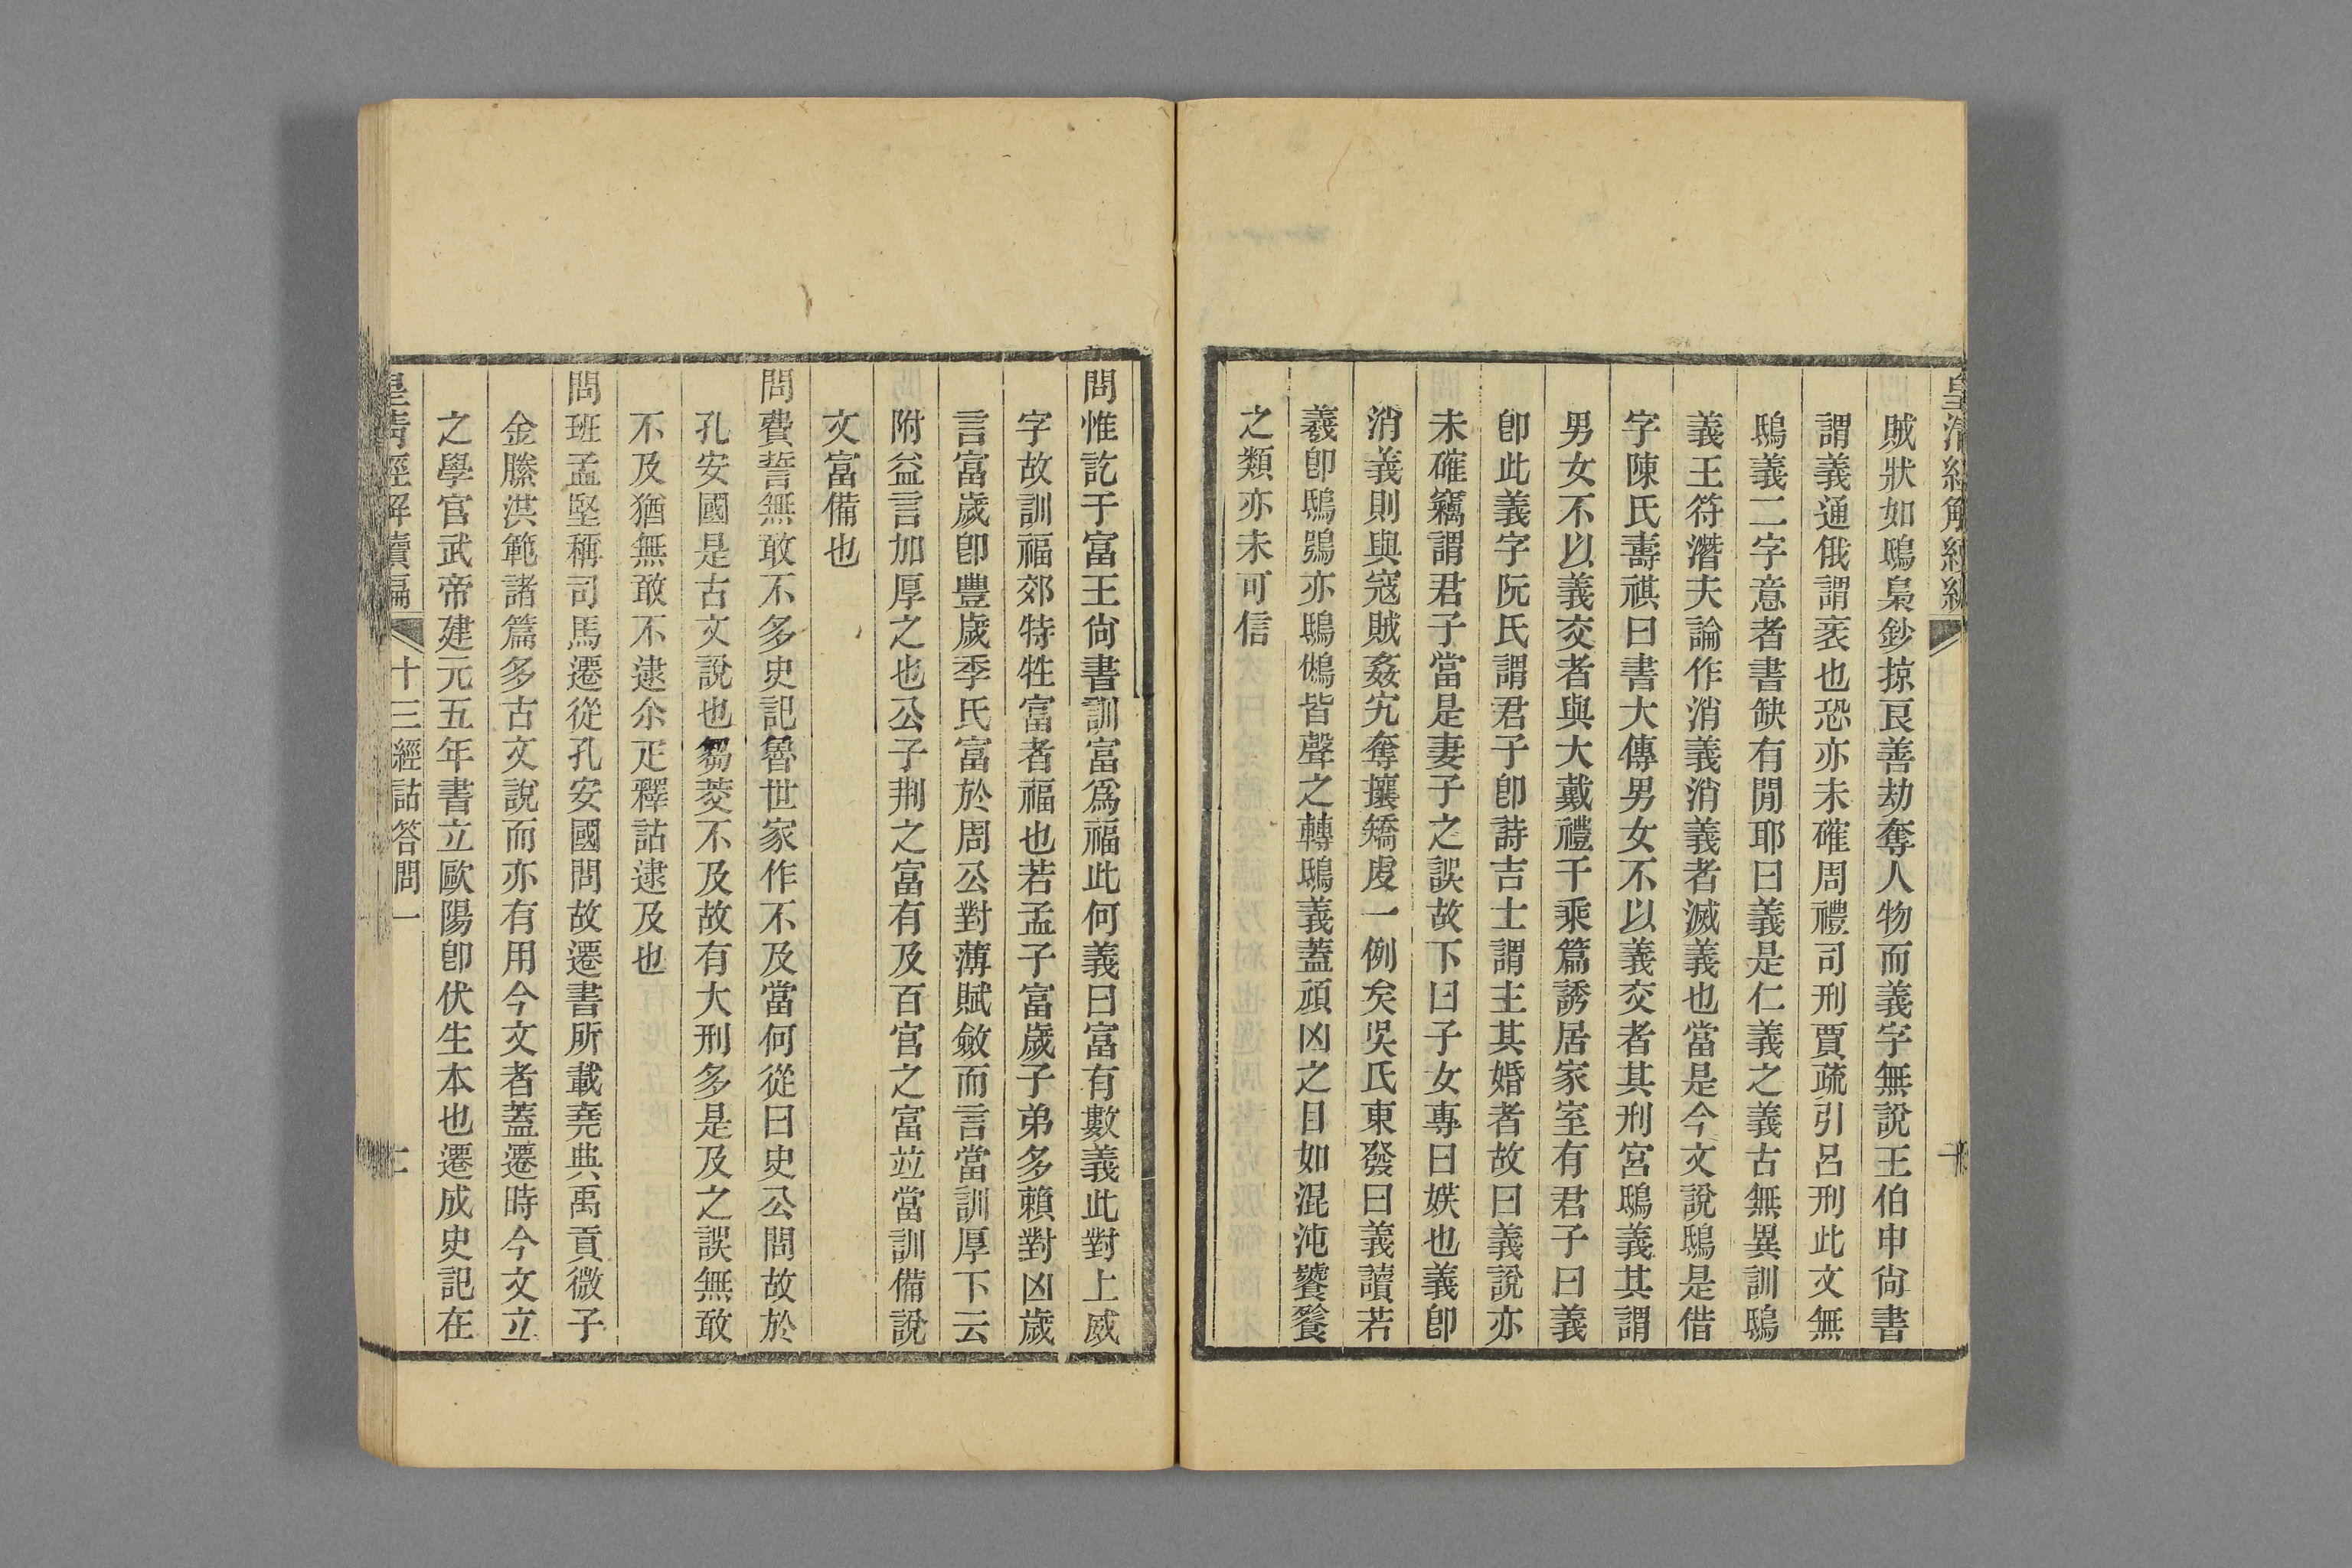 賊狀如鴟梟鈔掠良善劫奪人物而義字無說王伯申尙書
謂義通俄謂衺也恐亦未確周禮司刑賈疏引呂刑此文無
鴟義二字意者書缺有閒耶曰義是仁義之義古無異訓鴟
義王符潛夫論作消義消義者滅義也當是今文說鴟是借
字陳氏壽祺曰書大傳男女不以義交者其刑宮鴟義其謂
男女不以義交者與大戴禮千乘篇誘居家室有君子曰義
卽此義字阮氏謂君子卽詩吉士謂主其婚者故曰義說亦
未確竊謂君子當是妻子之誤故下曰子女專曰媄也義卽
消義則與寇賊姦宄奪攘矯虔一例矣吳氏東發曰義讀若
羲卽鴟鴞亦鴟鵂皆聲之轉鴟義蓋頑凶之目如混沌饕餮
之類亦未可信
問惟訖于富王尙書訓富爲福此何義曰富有數義此對上威
字故訓福郊特牲富者福也若孟子富歲子弟多賴對凶歲
言富歲卽豐歲季氏富於周公對薄賦斂而言當訓厚下云
附益言加厚之也公子荆之富有及百官之富竝當訓備說
文富備也
問費誓無敢不多史記魯世家作不及當何從曰史公問故於
孔安國是古文說也芻茭不及故有大刑多是及之誤無敢
不及猶無敢不逮尒疋釋詁逮及也
問班孟堅稱司馬遷從孔安國問故遷書所載堯典禹貢微子
金縢洪範諸篇多古文說而亦有用今文者蓋遷時今文立
之學官武帝建元五年書立歐陽卽伏生本也遷成史記在
皇淸經解續編 十三經詁答問一